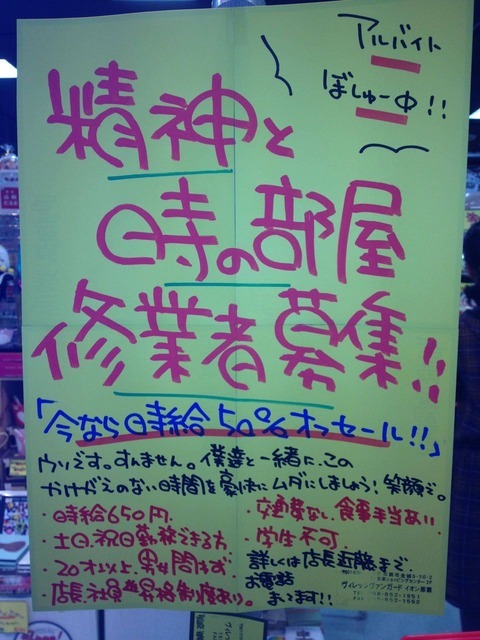 アルバイト
ぼしゅー中!!
精神と
時の部屋
修業者募集!!
「今なら時給50%オッセール!!」
ウソです。すんません。僕達と一緒に、この
かけがえのない時間を豪快にムダにしましょう!笑顔で。
・時給650円
・土日祝日勤務できる方
・20才以上、男女問わず
・店長、社員昇格制度あり。
・交通費なし、食事手当あり
・学生不可
詳しくは店長近藤まで
お電話
まってます!!
ヴィレッジヴァンガード イオン那覇